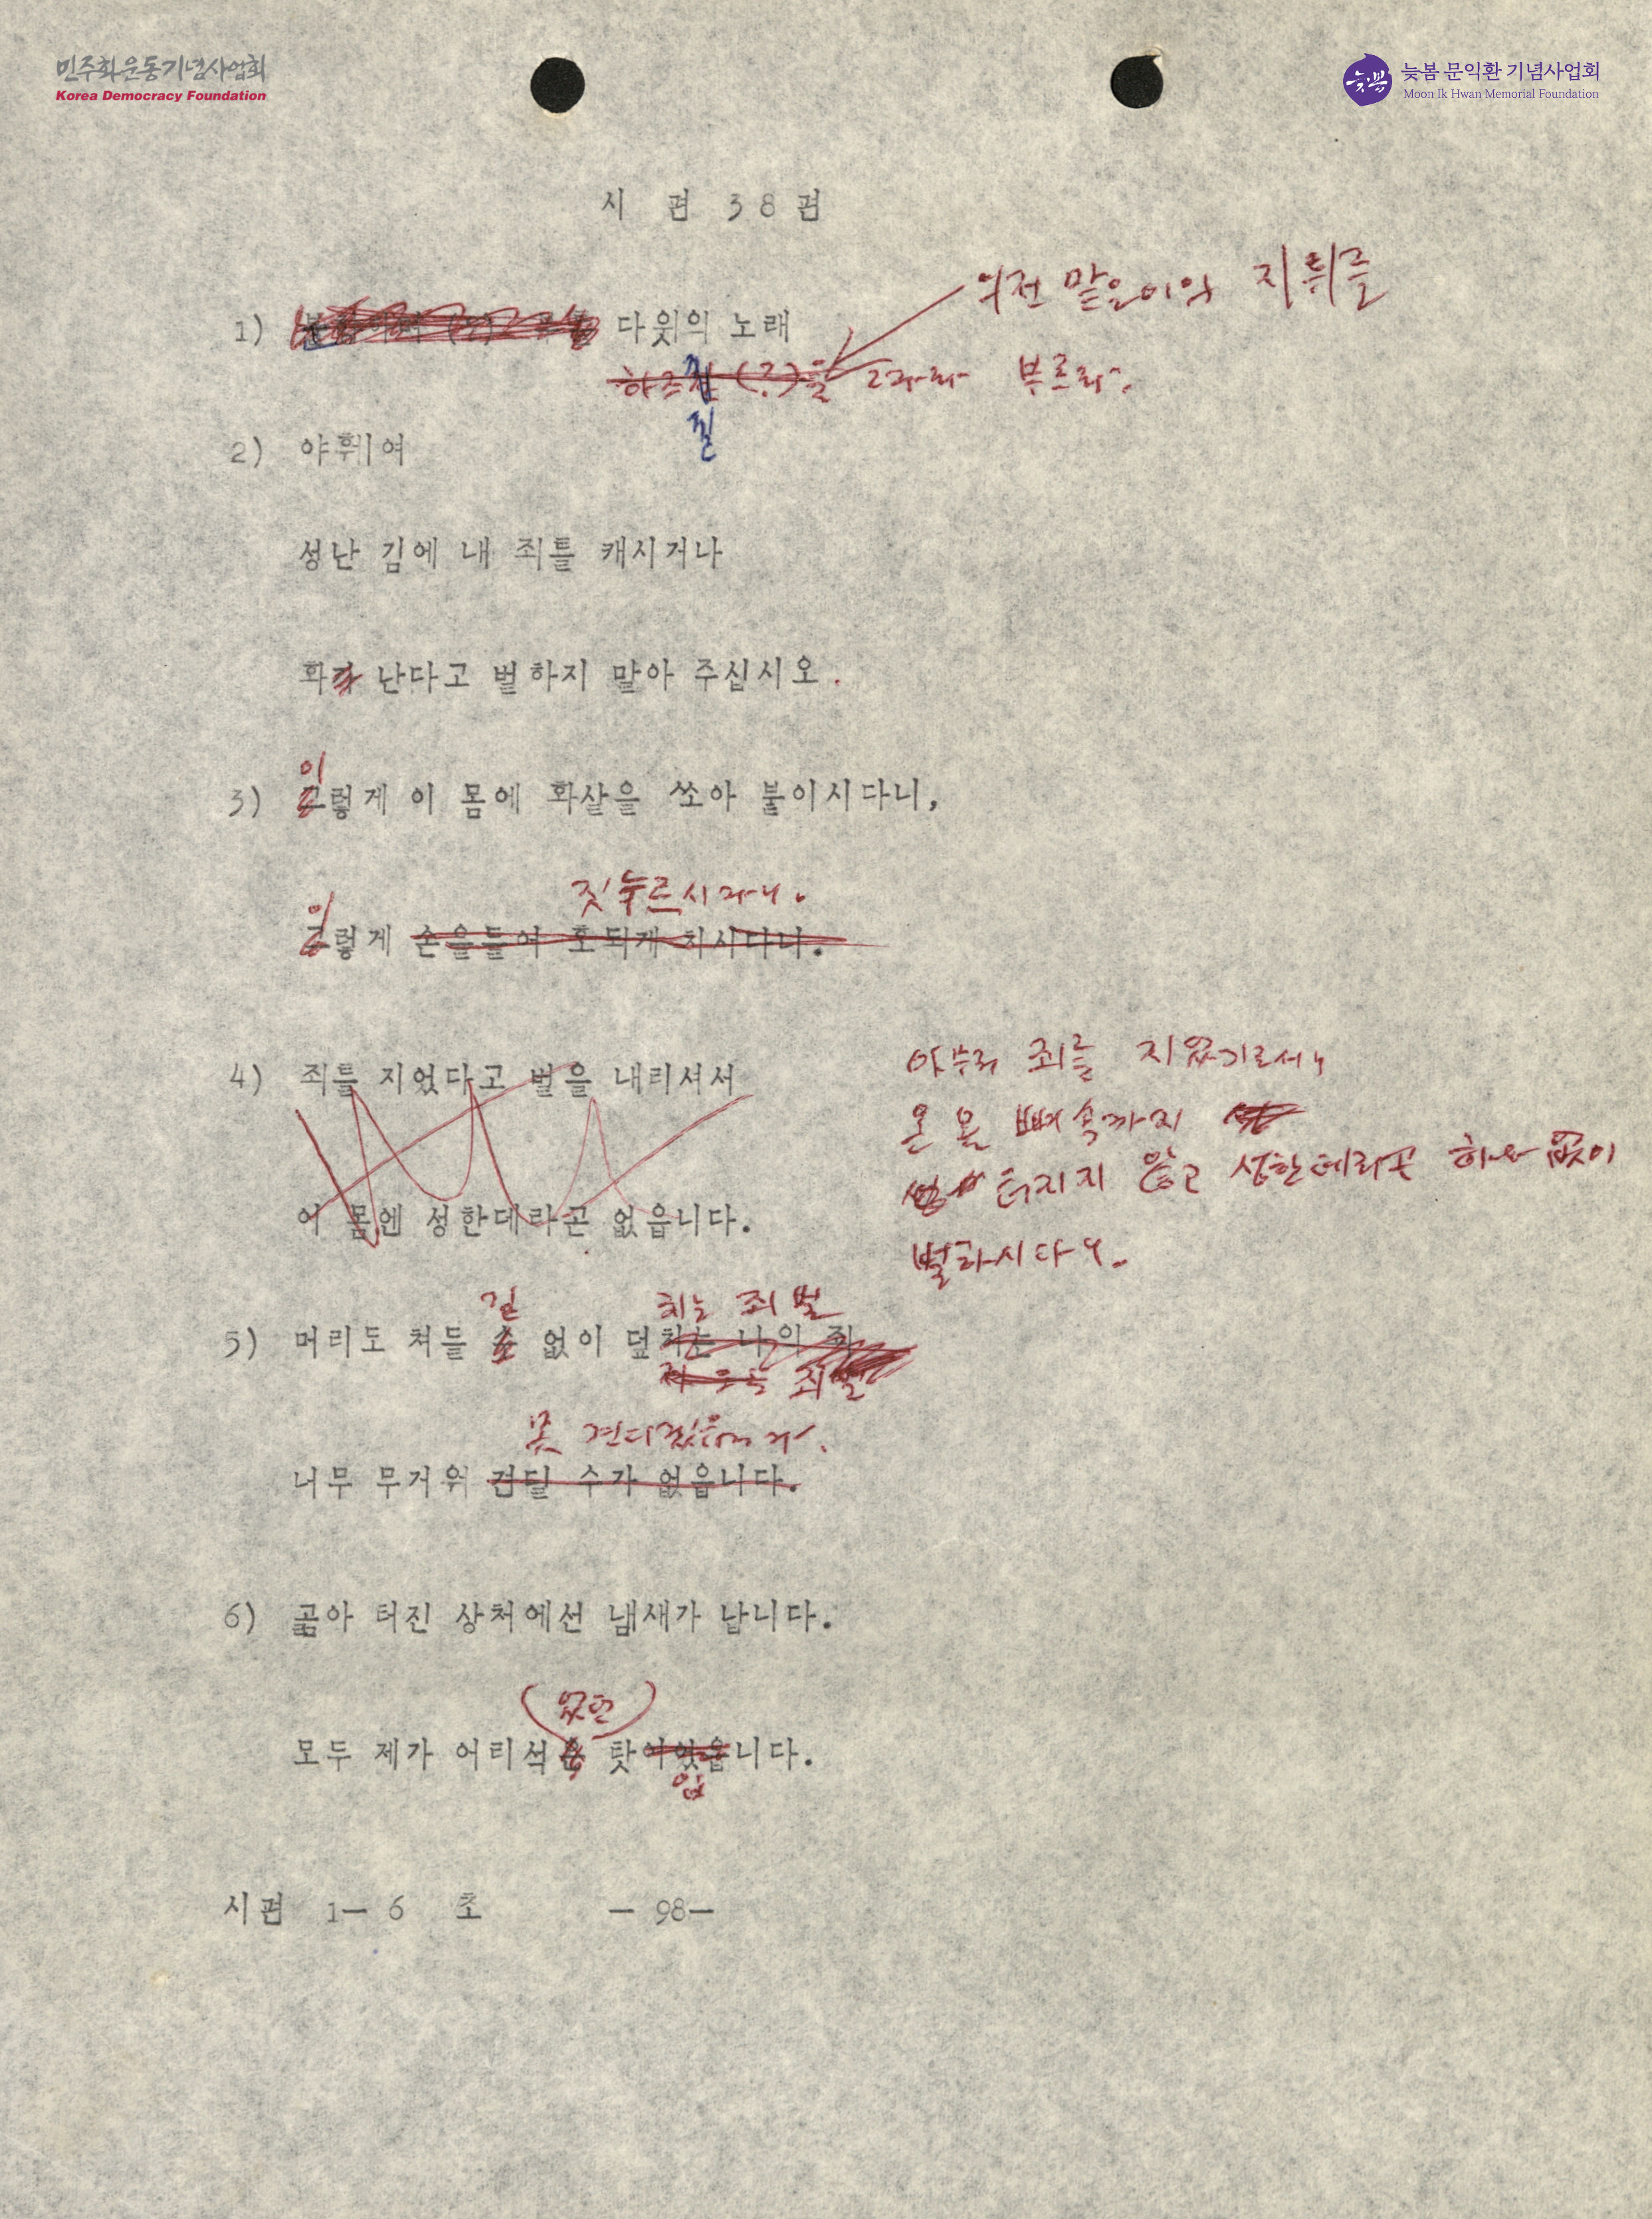 민주화운동기념사업회
Korea Democracy Foundation
늦봄
늦봄 문익환 기념사업회
Moon Ik Hwan Memorial Foundation
시 편 38 편
맡은이의 지휘를
1) 다윗의 노래
(?)를 따라 부르라.
필
2) 야훼여
성난 김에 내 죄를 캐시거나
화가 난다고 벌하지 말아 주십시오.
이
3) 그렇게 이 몸에 화살을 쏘아 붙이시다니,
짓누르시다니.
이
그렇게 손을들어 호되게 치시다니.
4) 죄를 지었다고 벌을 내리셔서
아무리 죄를 지었기로서니
온 몸 뼈 속까지
이 몸엔 성한데라곤 없읍니다.
터지지 않고 성한데라곤 하나 없이
벌하시다니.
길 치는 죄벌
5) 머리도 쳐들 수 없이 덮치는 나의 죄
죄벌
못 견디겠읍니다.
너무 무거워 견딜 수가 없읍니다.
6) 곪아 터진 상처에선 냄새가 납니다.
었던
모두 제가 어리석은 탓이었읍니다.
입
시편 1— 6 초 — 98—